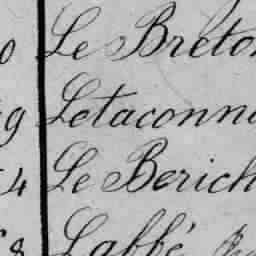 0 Le Breton
9 Letaconn
4 Le Berich
8 Laffé